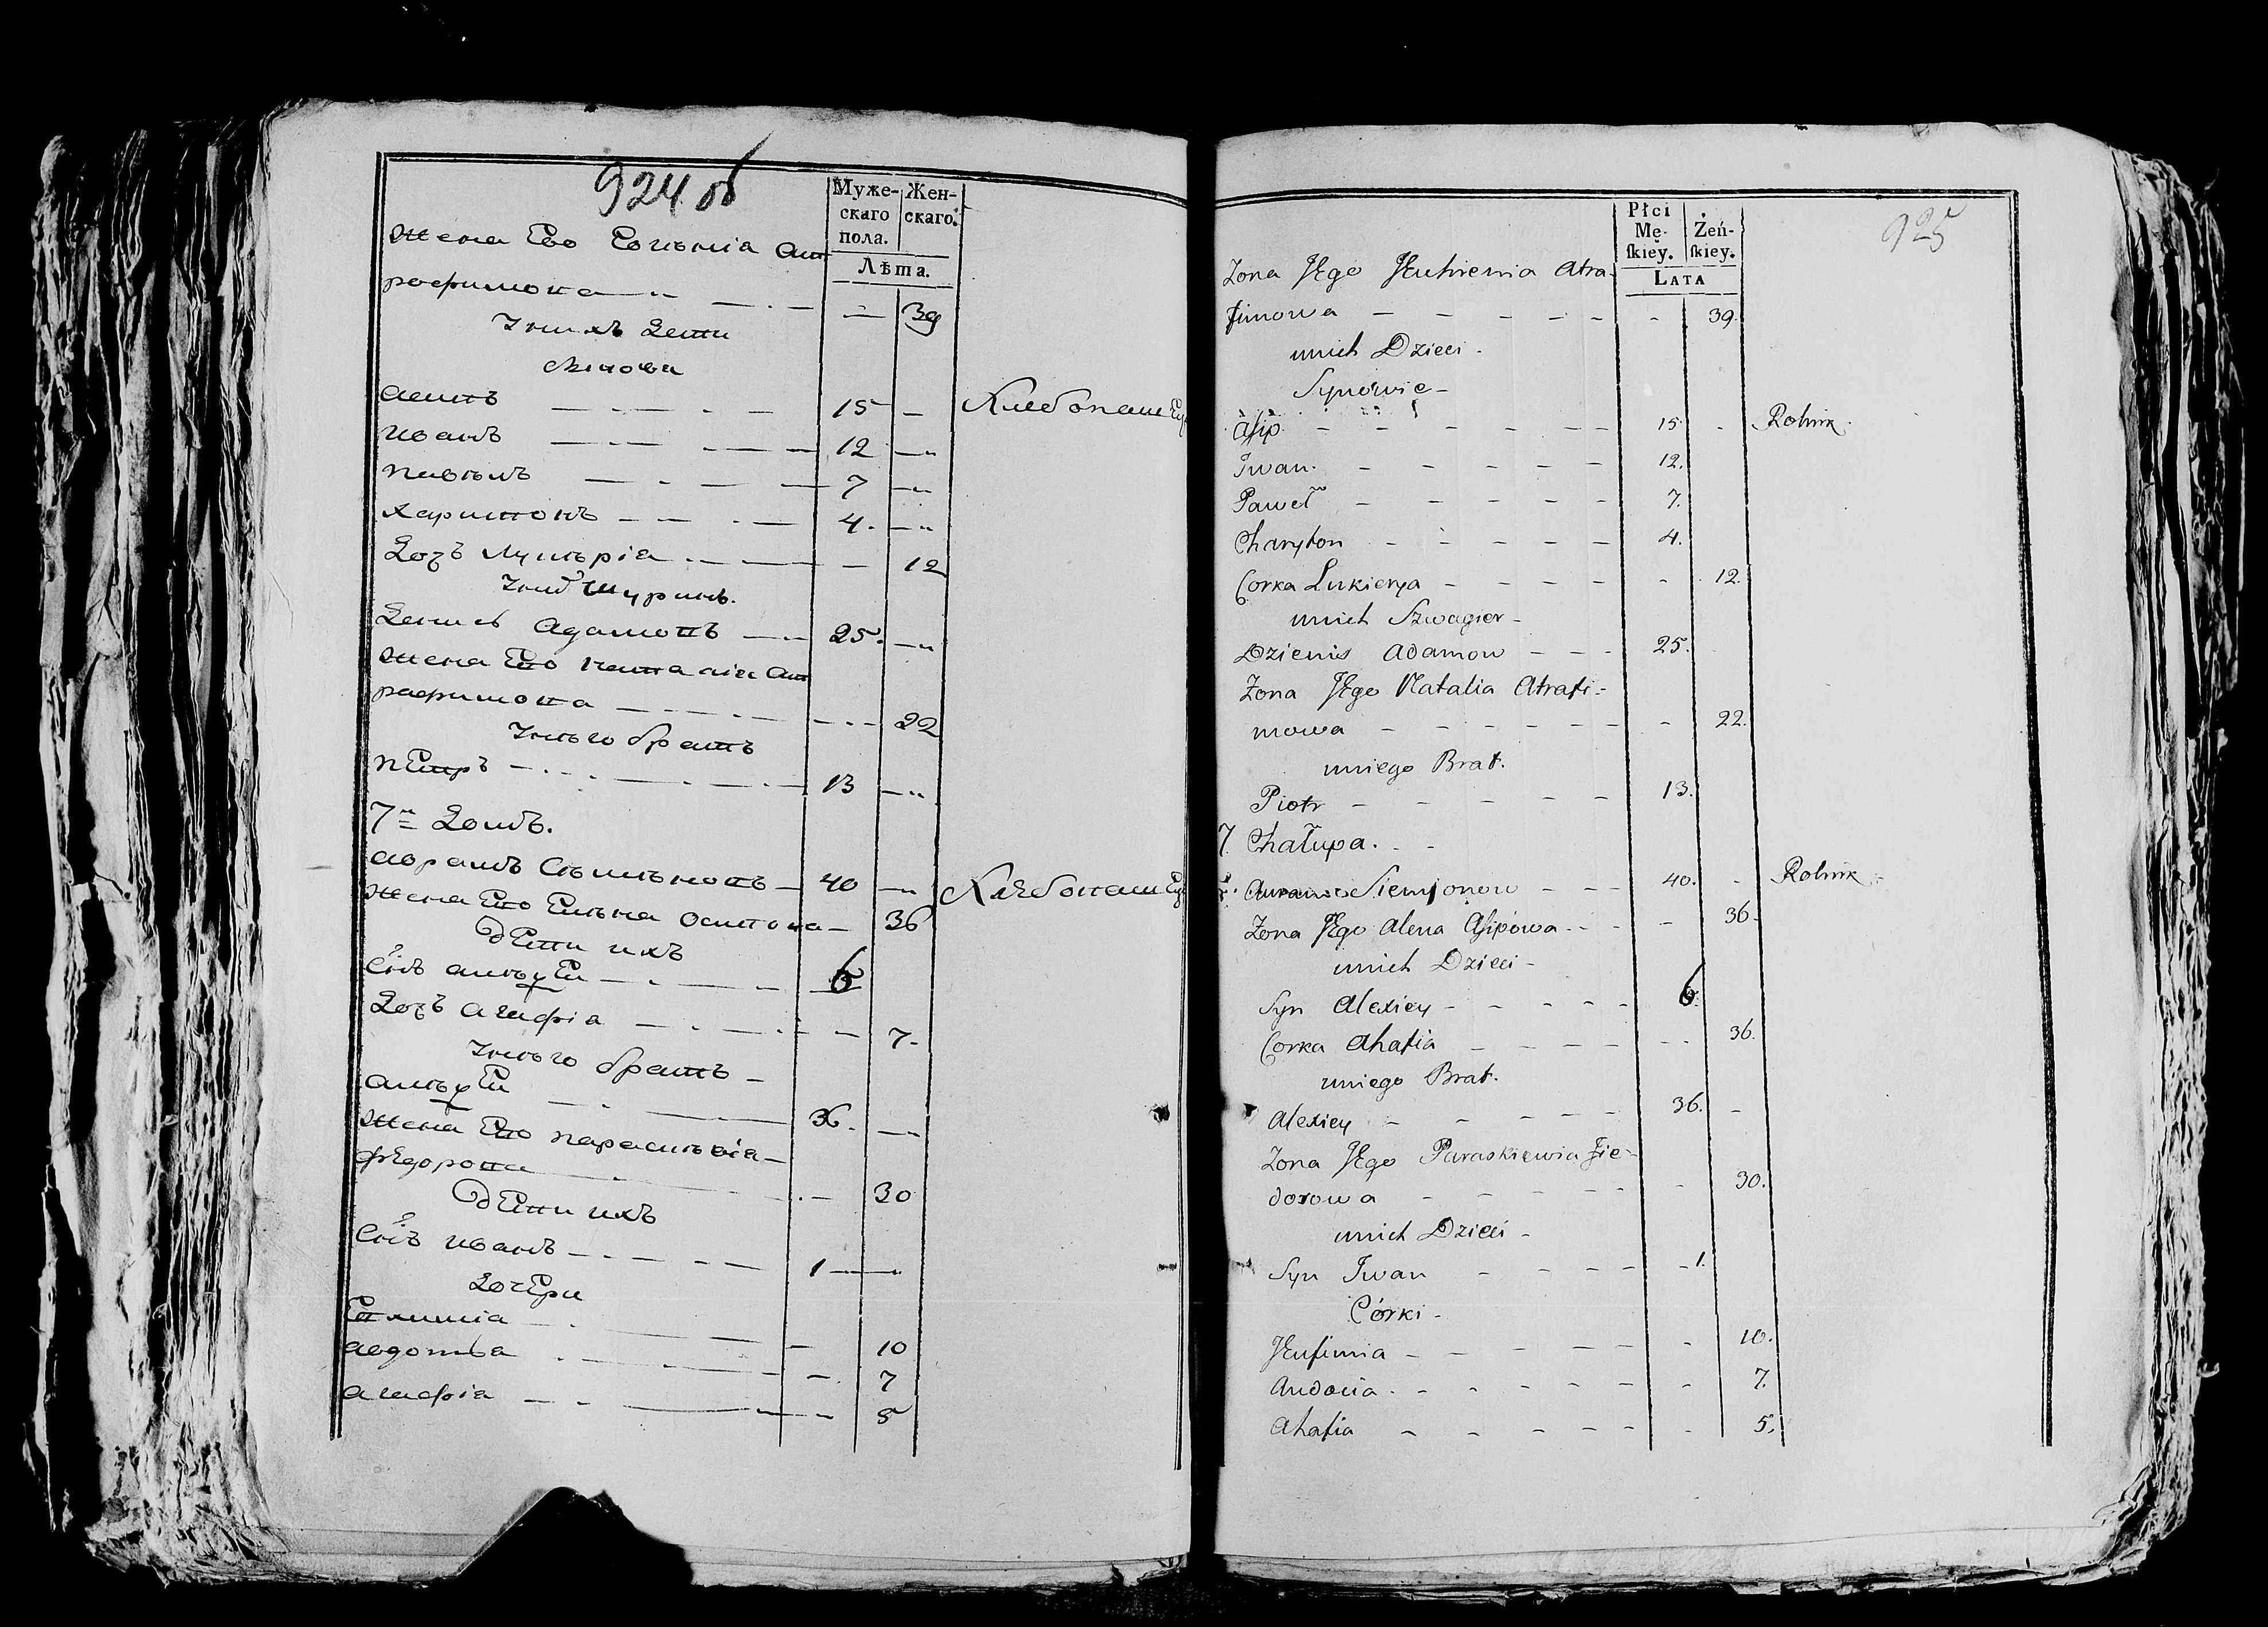 924 об
Муже- Жен-
скаго скаго.
пола.
Лѣта.
жена Ево Евгѣнія Ат
рафимова 39
У них Дети
Синови
Асипъ 15 Хлебопашец
Иванъ 12
Павѣлъ 7
Харитонъ 4.
Дочъ Лукѣрія 12
У них Шуринъ.
Денис Адамовъ 25.
жена Ево Наталия Ат
рафимова 22
У нѣго братъ
Пётръ 13
7й Домъ.
Аврамъ Сѣмѣновъ 40 Хлѣбопашец
жена Ево Елѣна Осипова 36
дети ихъ
Сынъ Алѣксей 6
Дочъ Агафія 7.
У нѣго братъ
Алѣксей 36.
жена Ево Параскѣвія
Федорова 30
дети ихъ
Сынъ Иванъ 1
Дочери
10
Авдотья 7
Агафія 5
925
Płci Żeń-
Mę- ſkiey.
ſkiey.
LATA
Zona JEgo JEuhienia Atra-
fimowa 39.
unich Dzieci.
Synowie
Asip 15. Rolnik.
Iwan. 12.
Paweł 7.
Charyton 4.
Corka Lukierya 12.
unich Szwagier
Dzienis Adamow 25.
Zona JEgo Natalia Atrafi-
mowa 22.
uniego Brat.
Piotr 13.
7. Chałupa.
Auram Siemionow 40. Rolnik
Zona JEgo Alena Asipowa. 36.
unich Dzieci
Syn Alexiey 6.
Corka Ahafia 36.
uniego Brat.
Alexiey 36.
Zona JEgo Paraskiewia Fie-
dorowa 30.
unich Dzieci
Syn Iwan 1.
Córki
JEufimia 10.
Audocia. 7.
Ahafia 5.